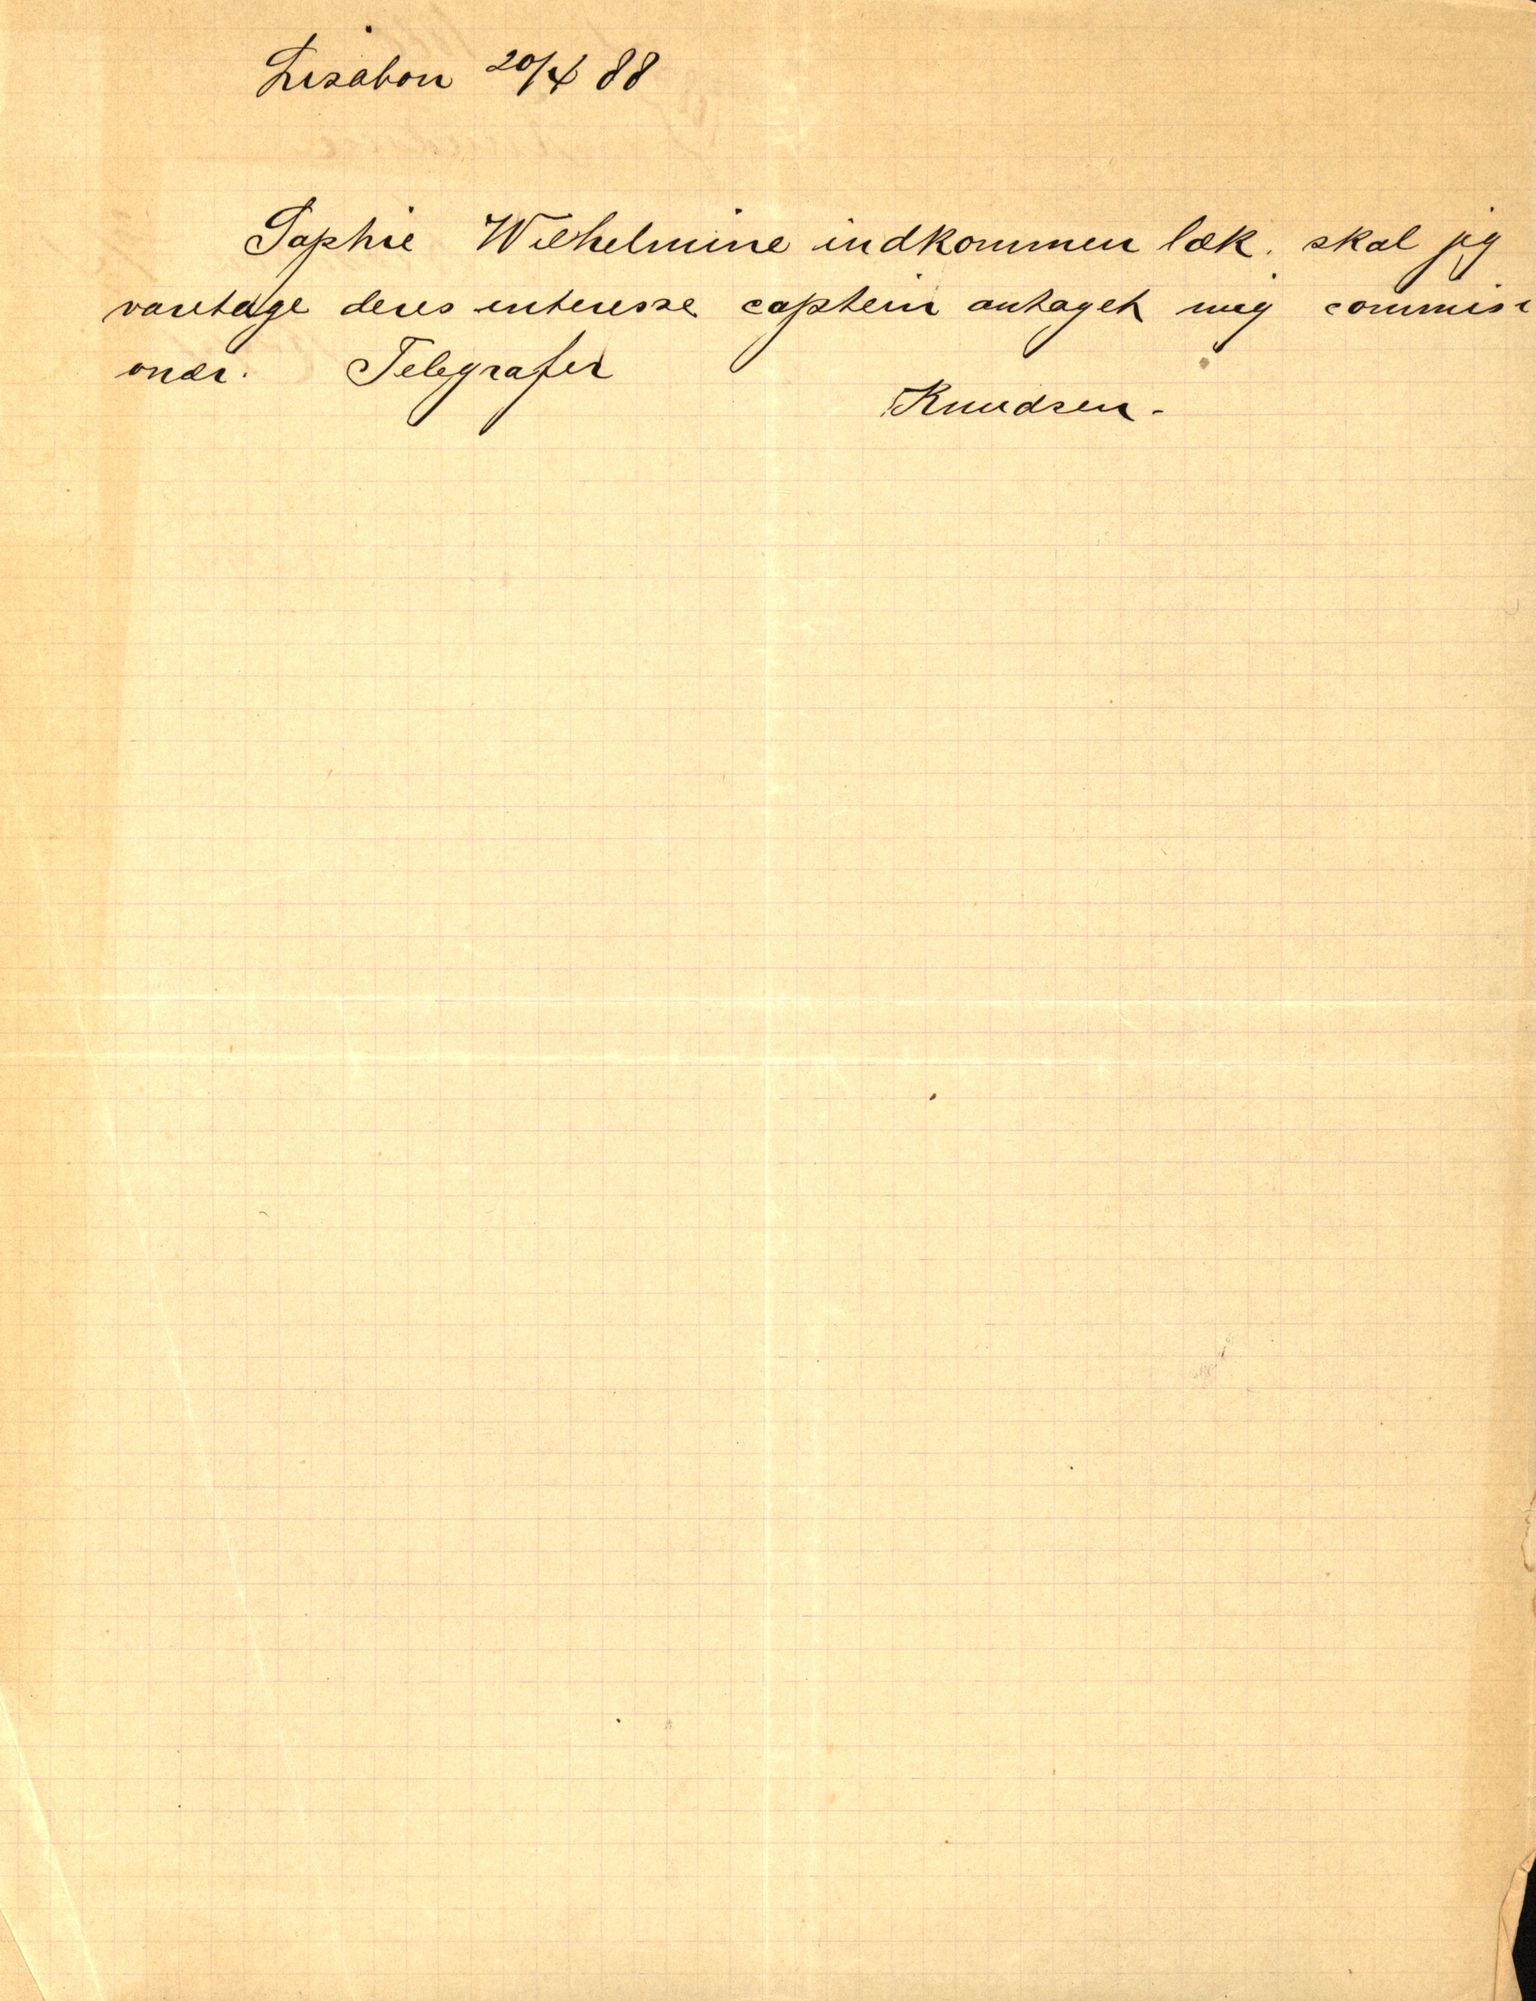 Lissabon 20/4 88
Sophie Wilhelmine indkommen læk. skal jeg
varetage deres interesse captein antaget mig commisi
onær. Telegrafer
Knudsen.